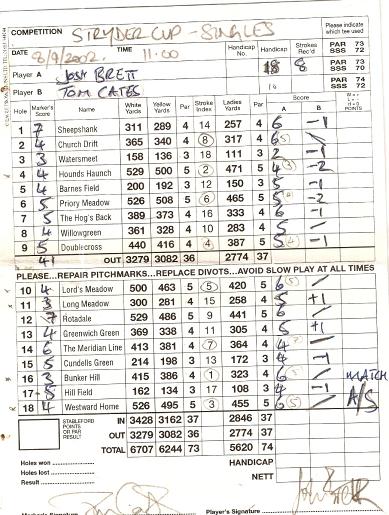 COMPETITION STRYDER CUP - SINGLES
Please indicate which tee used
DATE 8/9/2002. TIME 11.00
Handicap No. Handicap Strokes Rec'd
PAR 73 SSS 70
Player A Josh BRETT 18 8
PAR 74 SSS 72
Player B TOM CATES 10
Hole Marker's Score Name White Yards Yellow Yards Par Stroke Index Ladies Yards Par Score A B W = + L = - H = 0 POINTS
1 7 Sheepshank 311 289 4 14 257 4 6 -1
2 4 Church Drift 365 340 4 8 317 4 6 (5) /
3 3 Watersmeet 158 136 3 18 111 3 2 -1
4 4 Hounds Haunch 529 500 5 2 471 5 4 (3) -2
5 4 Barnes Field 200 192 3 12 150 3 5 -1
6 5 Priory Meadow 526 508 5 6 465 5 5 -2
7 5 The Hog's Back 389 373 4 16 333 4 6 -1
8 4 Willowgreen 361 328 4 10 328 4
9 5 Doublecross 440 416 4 4 387 5 5 -1
41 OUT 3279 3082 36 2774 37
PLEASE...REPAIR PITCHMARKS...REPLACE DIVOTS...AVOID SLOW PLAY AT ALL TIMES
10 4 Lord's Meadow 500 463 5 5 420 5 6 /
11 3 Long Meadow 300 281 4 15 258 4 5 +1
12 7 Rotadale 529 486 5 9 441 5 6 /
13 4 Greenwich Green 369 338 4 11 305 4 5 +1
14 6 The Meridian Line 413 381 4 7 364 4
15 5 Cundells Green 214 198 3 13 172 3 4 -1
16 3 Bunker Hill 415 386 4 1 323 4 6 / MATCH
17 5 Hill Field 162 134 3 17 108 3 4 -1 A/S
18 4 Westward Home 526 495 5 3 455 5 6 (5) /
STABLEFORD POINTS OR PAR RESULT
IN 3428 3162 37 2846 37
OUT 3279 3082 36 2774 37
TOTAL 6707 6244 73 5620 74
Holes won
Holes lost
Result
HANDICAP
NETT
Marker's Signature
Player's Signature